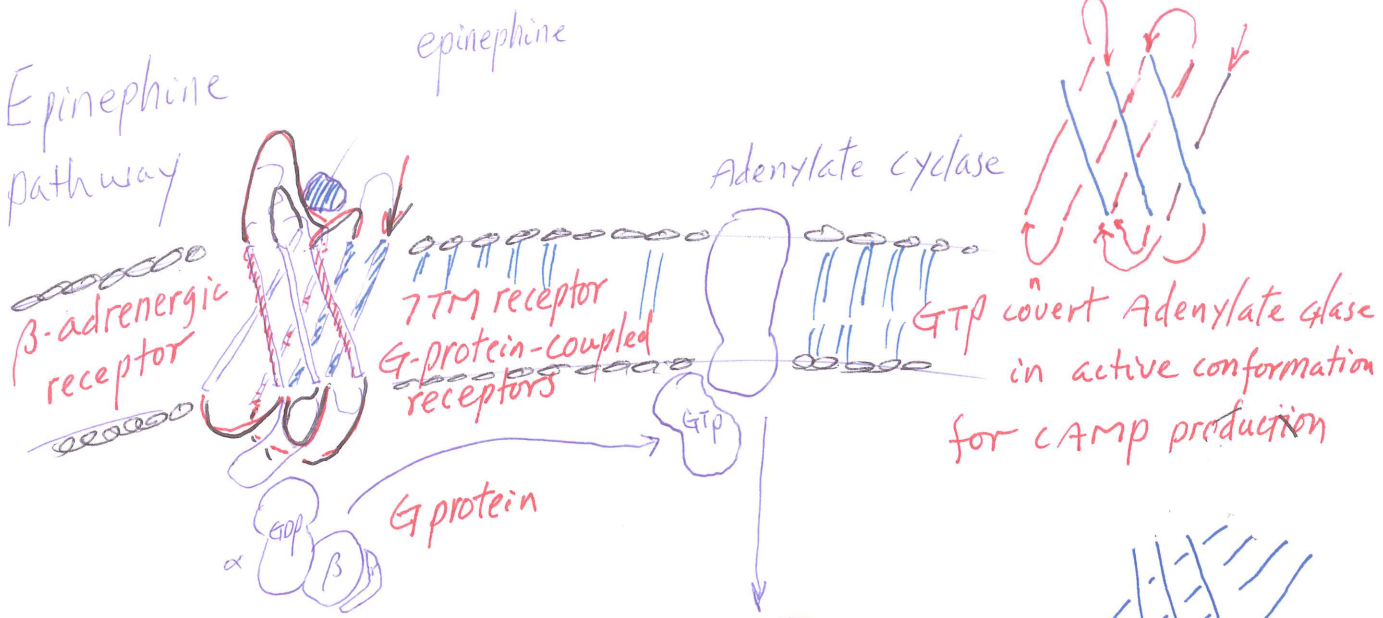 epinephine
Epinephine
pathway
Adenylate cyclase
β-adrenergic
receptor
7TM receptor
G-protein-coupled
receptors
GTP covert Adenylate clase
n
in active conformation
for cAMP production
GTP
G protein
GDP
α
β